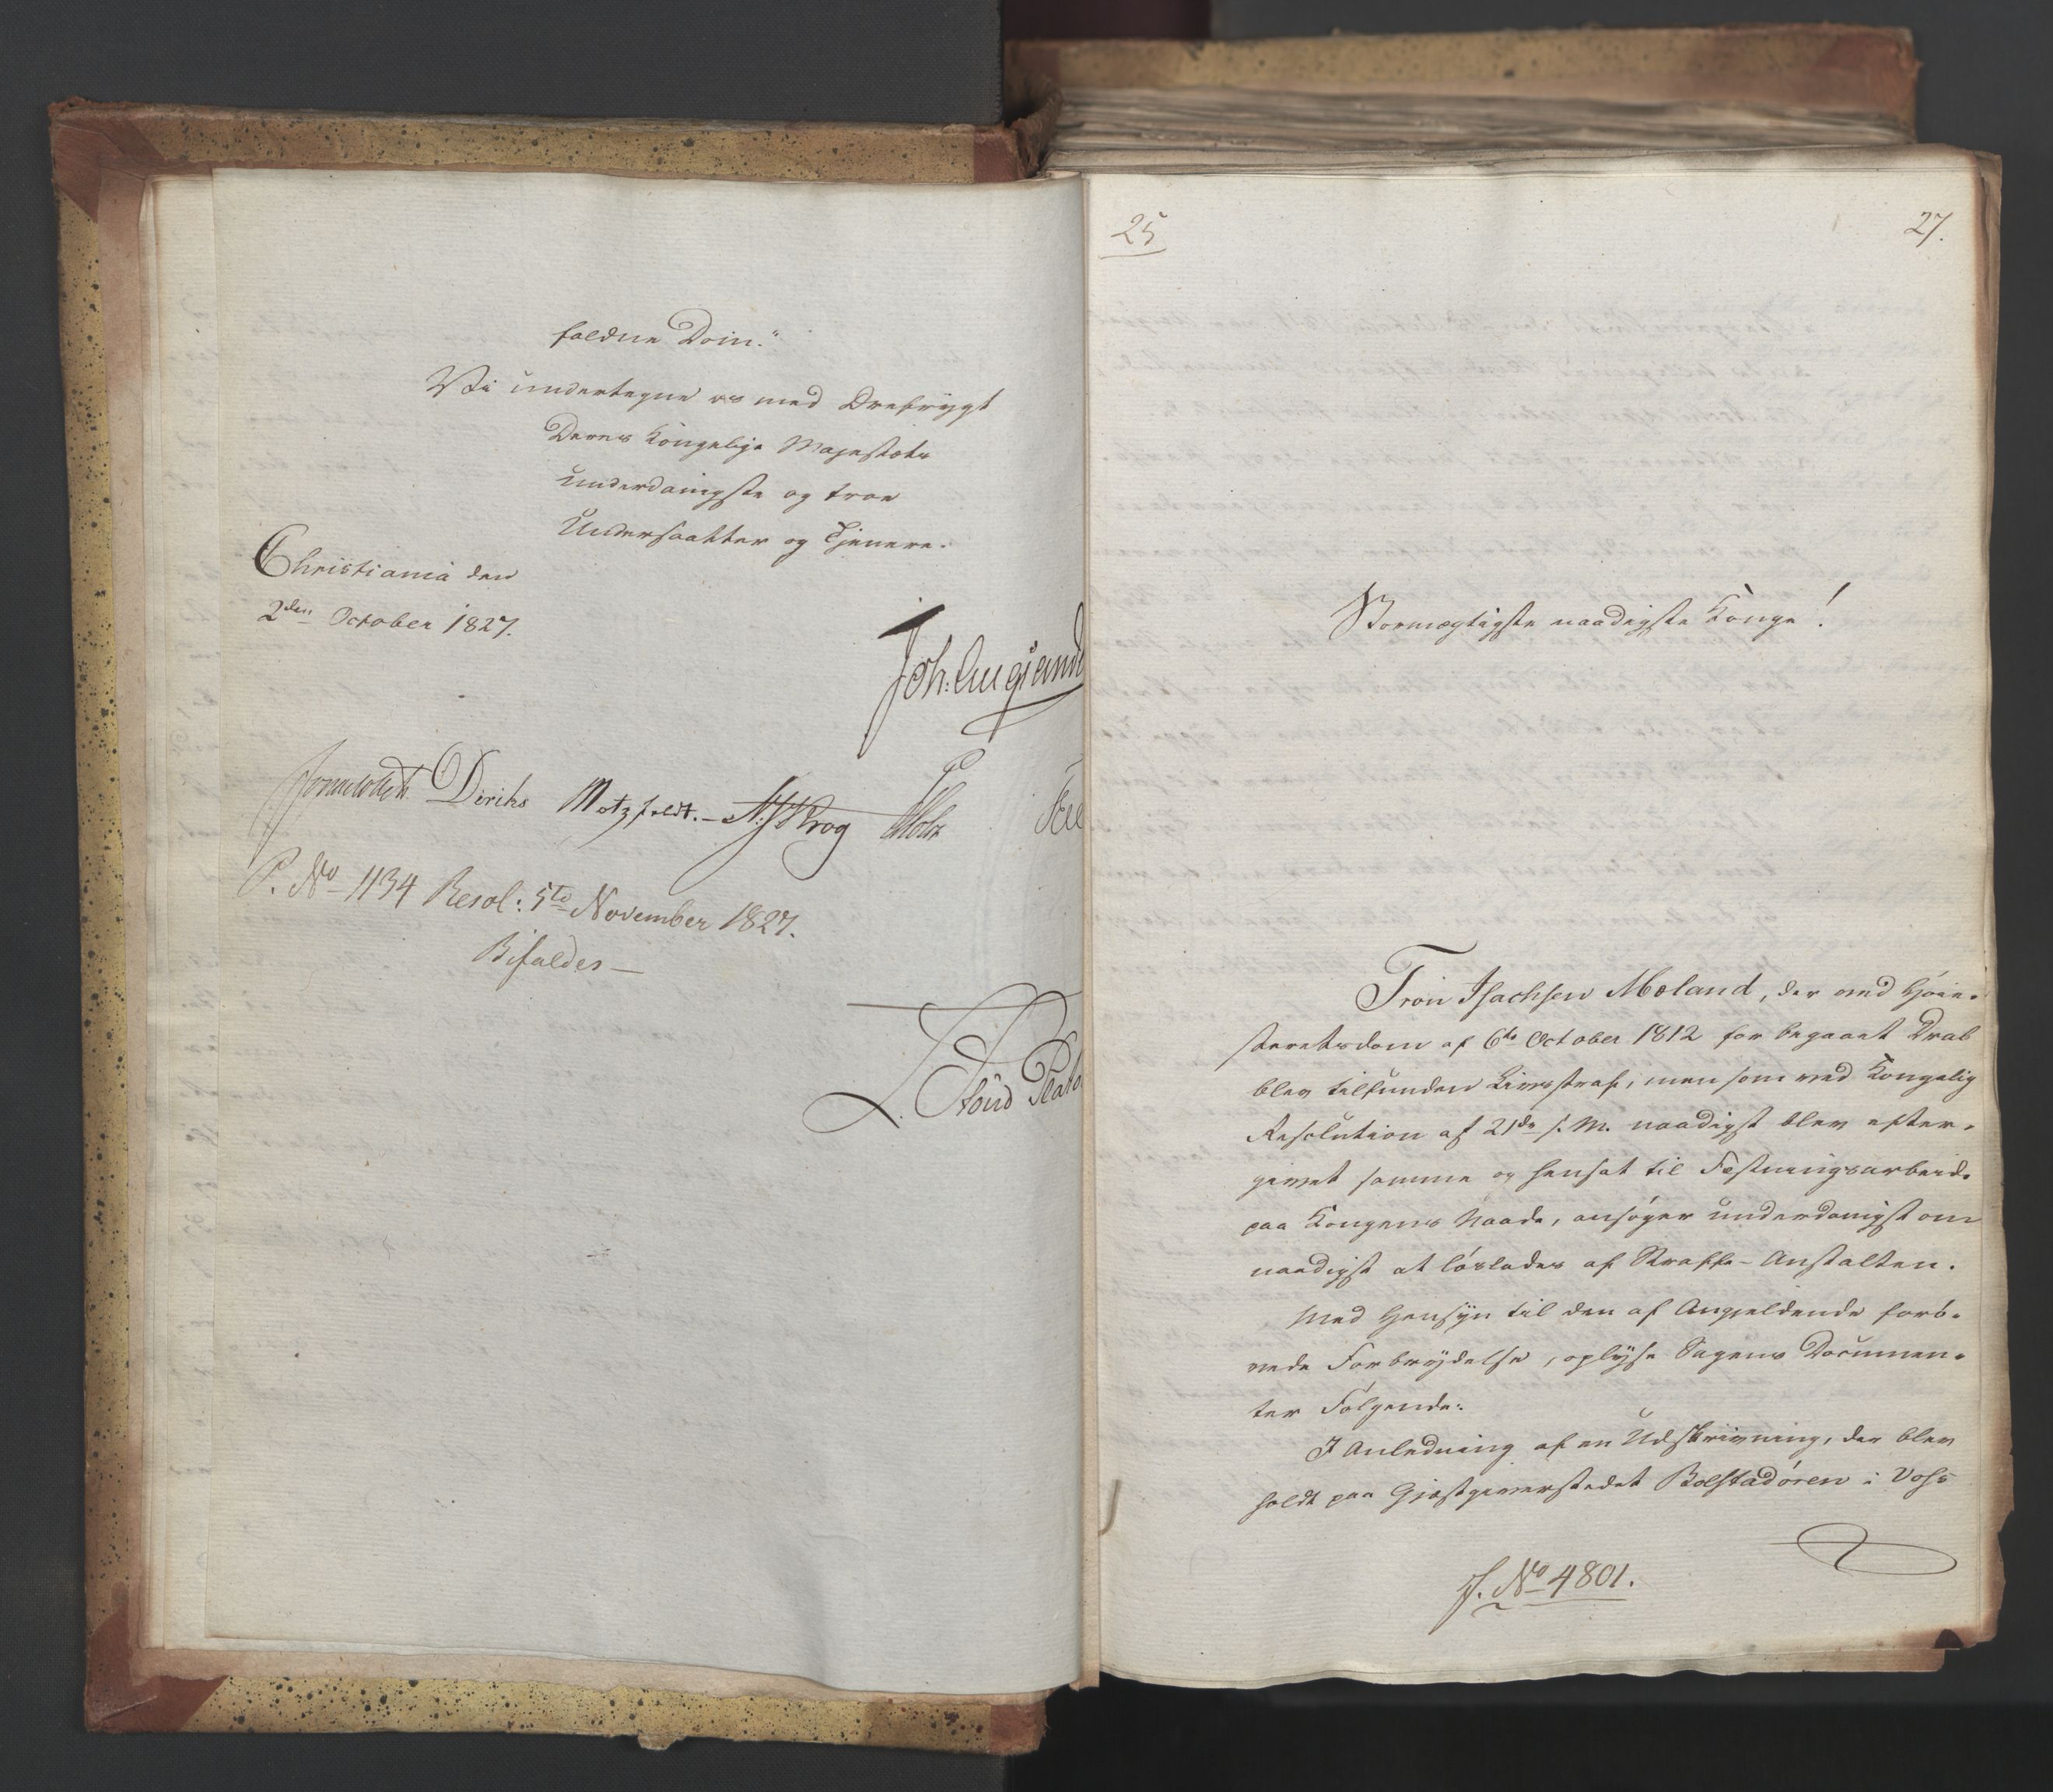 faldne Dom."
Vi undertegne os med Ærefrygt
Deres Kongelige Majestæts
underdanigste og troe
Undersaatter og Tjenere.
Christiania den
2den October 1827.
Joh: Aug: Sand
Sommerhielm Diriks Motzfeldt. N. J. Krog Holst
P. No 1134 Resol: 5te November 1827.
Bifaldes —
25
27.
Stormægtigste naadigste Konge!
Tron Isachsen Moland, der ved Høie-
steretsdom af 6te October 1812 for begaaet Drab
blev tilfunden Livsstraf, men som ved Kongelig
Resolution af 21de s. M. naadigst blev efter-
givet samme og hensat til Fæstningsarbeide
paa Kongens Naade, ansøger underdanigst om
naadigst at løslades af Straffe-Anstalten.
Med Hensyn til den af Angjeldende forø-
vede Forbrydelse, oplyse Sagens Documen-
ter Følgende:
I Anledning af en Udskrivning, der blev
holdt paa Gjæstgiverstedet Bolstadøren i Voss
J. No 4801.